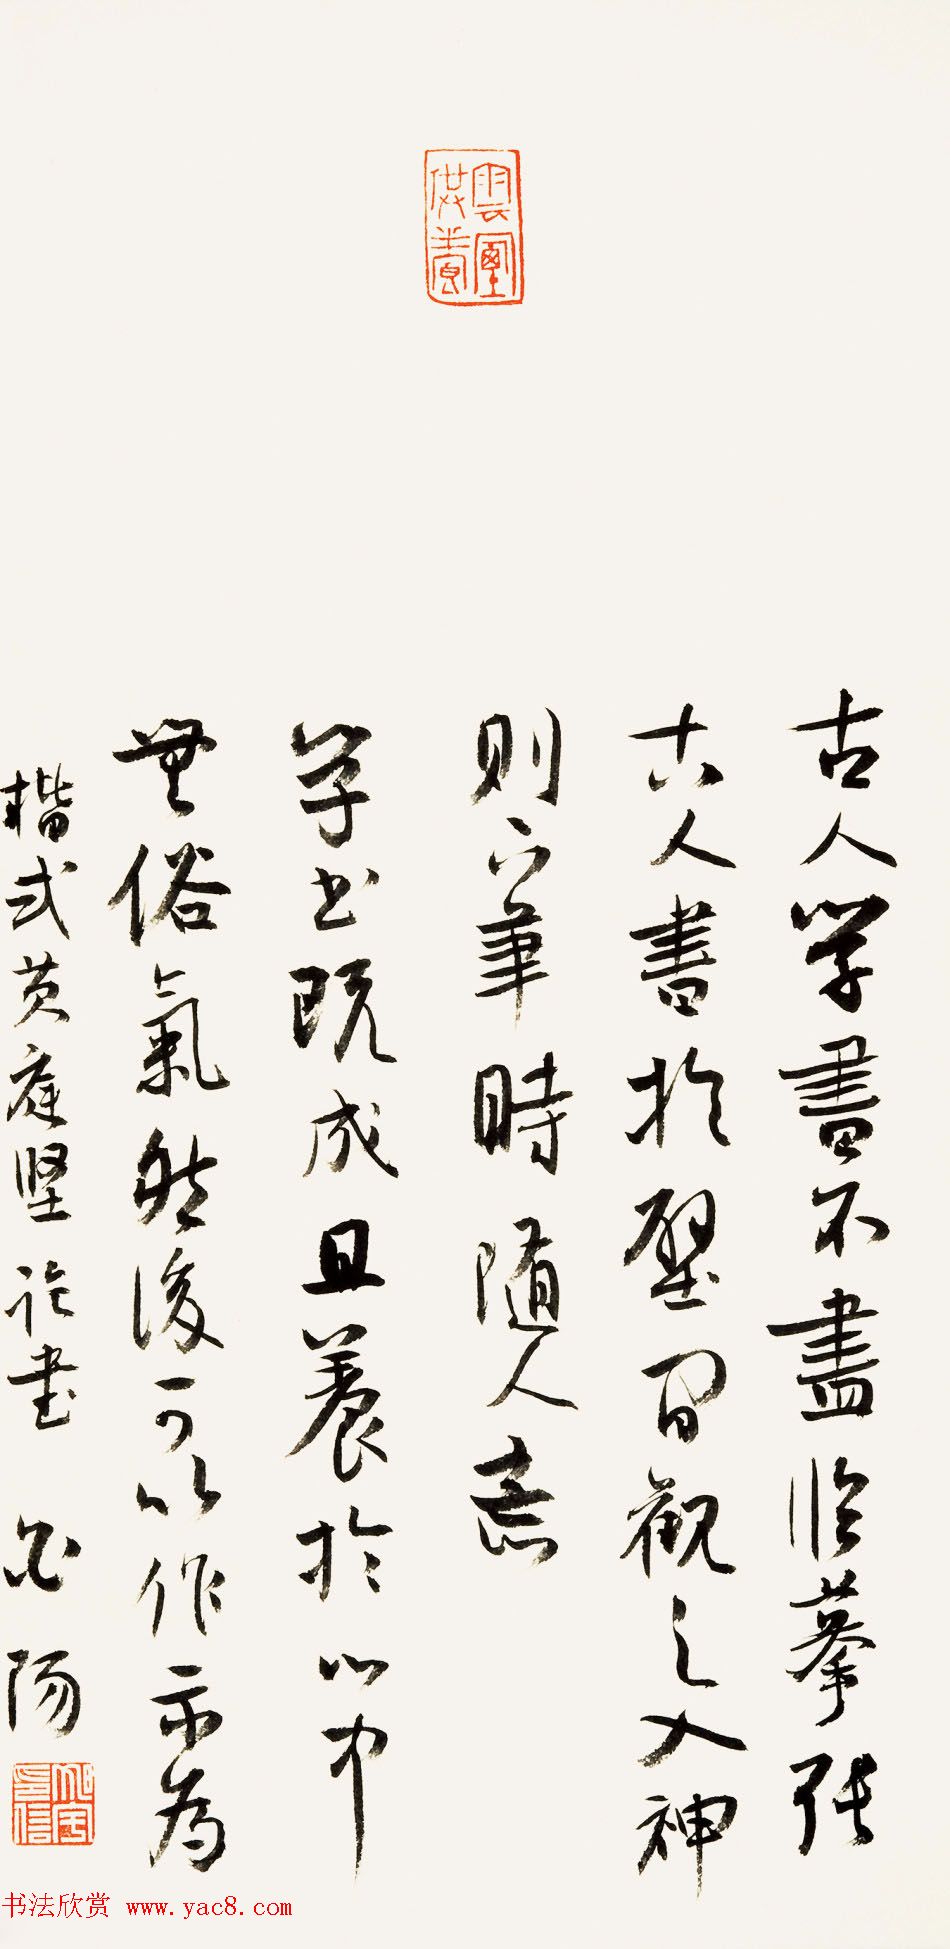 古人学書不盡临摹张
古人書於壁间觀之入神
则下筆時随人意
学书既成且養於心中
無俗氣然後可以作示为
楷式黄庭坚论书
供養
书法欣赏 www.yac8.com